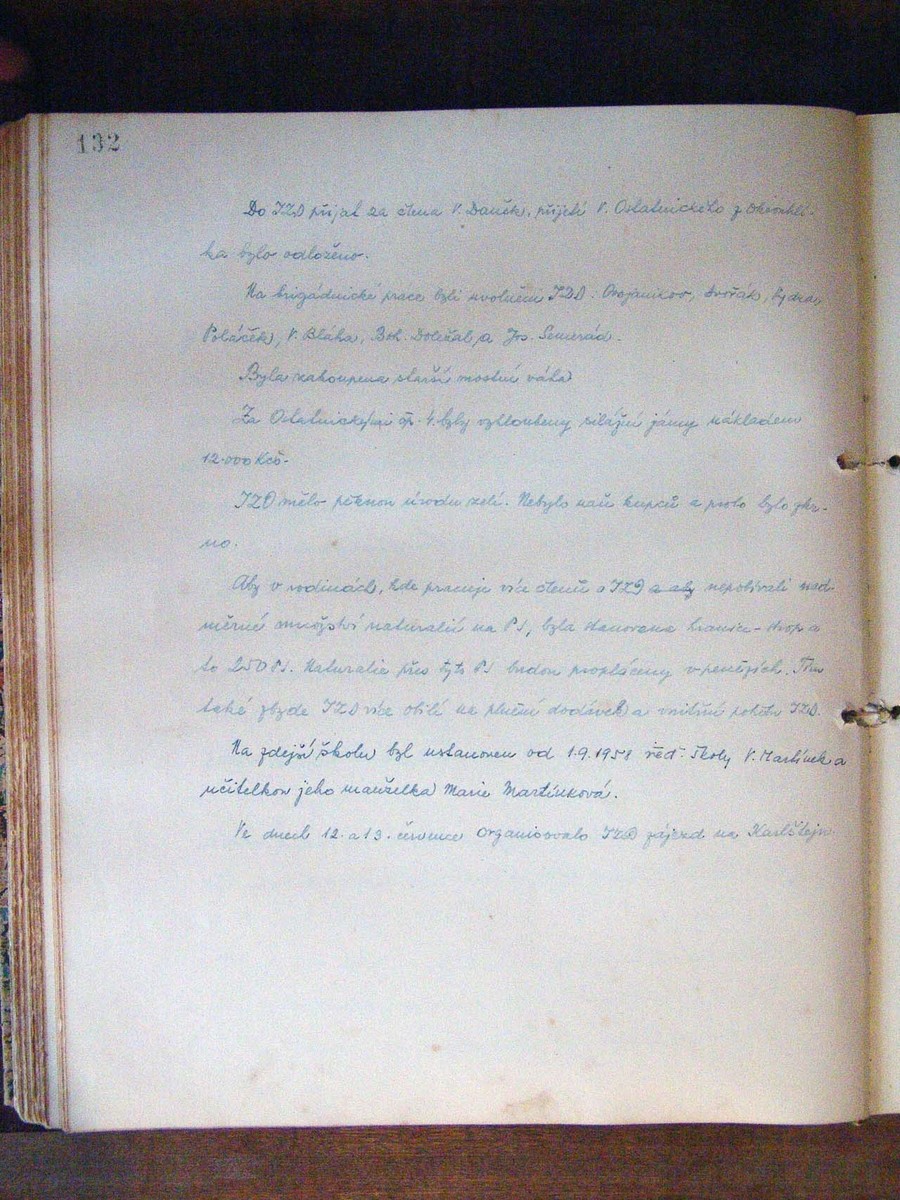 132
Do JZD přijat za člena V. Daněk, přijetí V. Oslatnického z Okrouhli-
ka bylo odloženo.
Na brigádnické práce byli uvolněni JZD. Dvořák,
Poláček, V. Bláha, Boh. Doležal a Jos. Semerád.
Byla zakoupena starší mostní váha
Za Oslatnickými čp. 4. byly vyhloubeny silážní jámy nákladem
12.000 Kčs.
JZD mělo pěknou úrodu zelí. Nebylo však kupců a proto bylo zkr-
no.
Aby v rodinách, kde pracuje více členů v JZD a aby nepobírali nad-
měrné množství naturalií na PJ, byla stanovena hranice - strop a
to 250 PJ. Naturalie přes tyto PJ budou propláceny v penězích. Tím
také zbyde JZD více obilí na plnění dodávek a vnitřní potřeb JZD.
Na zdejší školu byl ustanoven od 1.9.1958 řed. školy V. Martínek a
učitelkou jeho manželka Marie Martínková.
Ve dnech 12. a 13. července organisovalo JZD zájezd na Karlštejn